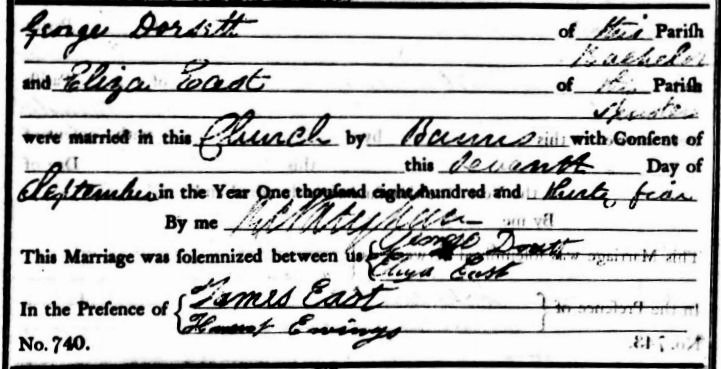 George Dorsett of this Parish
Bachelor
and Eliza East of this Parish
Spinster
were married in this Church by Banns with Consent of
this Seventh Day of
September in the Year One thousand eight hundred and thirty four
By me
This Marriage was solemnized between us { George Dorsett
Eliza East
In the Presence of { James East
Ewings
No. 740.